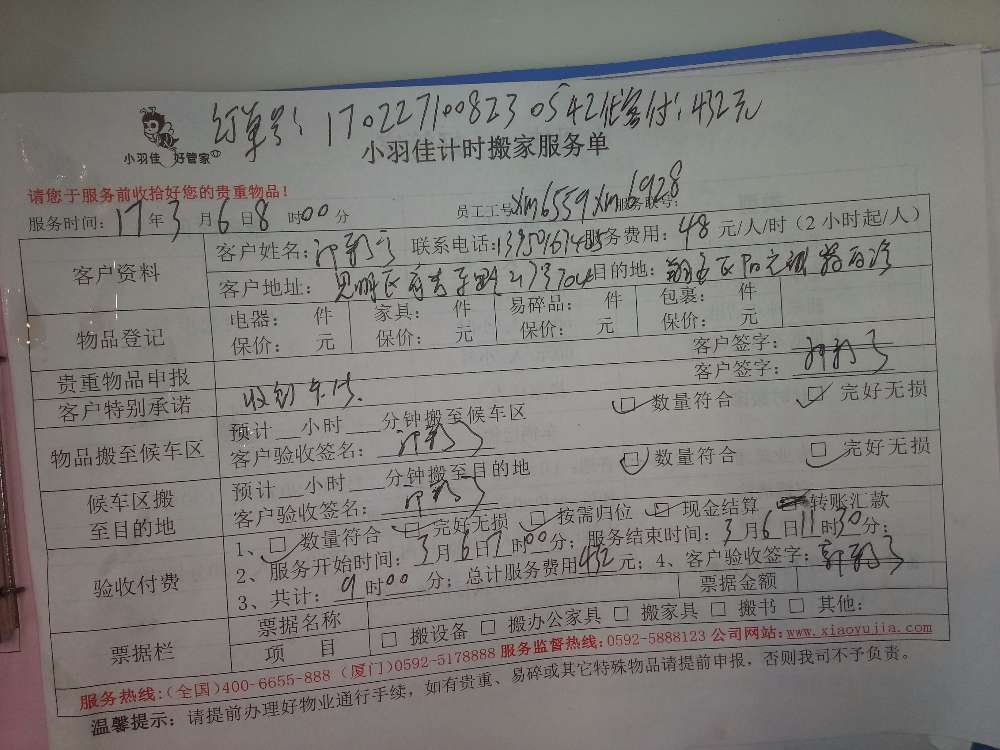 订单号：170227100823 0542 付：432元
小羽佳 好管家
小羽佳计时搬家服务单
请您于服务前收拾好您的贵重物品！
服务时间：17年3月6日8时00分 员工工号 xm6559 xm6928 服务联号：
客户资料 客户姓名： 联系电话： 服务费用：48元/人/时（2小时起/人）
客户地址：思明区 目的地：翔安区
物品登记 电器： 件 家具： 件 易碎品： 件 包裹： 件
保价： 元 保价： 元 保价： 元 保价： 元
贵重物品申报 客户签字：
客户特别承诺 收到 客户签字：
物品搬至候车区 预计__小时__分钟搬至候车区 数量符合 完好无损
客户验收签名：
候车区搬至目的地 预计__小时__分钟搬至目的地 数量符合 完好无损
客户验收签名：
验收付费 1、□数量符合 □完好无损 □按需归位 □现金结算 转账汇款
2、服务开始时间：3月6日7时00分；服务结束时间：3月6日11时30分；
3、共计：9时00分；总计服务费用432元；4、客户验收签字：
票据栏 票据名称 票据金额
项目 □搬设备 □搬办公家具 □搬家具 □搬书 □其他：
服务热线：(全国)400-6655-888 (厦门)0592-5178888 服务监督热线：0592-5888123 公司网站：www.xiaoyujia.com
温馨提示：请提前办理好物业通行手续，如有贵重、易碎或其它特殊物品请提前申报，否则我司不予负责。